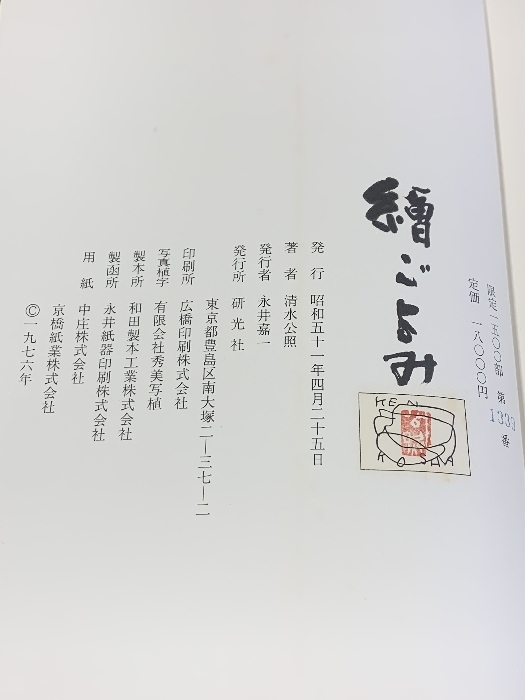 限定一五〇〇部 第1333番
定価 一八〇〇〇円
繪ごよみ
KEN
KOSHA
発行 昭和五十一年四月二十五日
著者 清水公照
発行者 永井嘉一
発行所 研光社
東京都豊島区南大塚二―三七―二
印刷所 広橋印刷株式会社
写真植字 有限会社秀美写植
製本所 和田製本工業株式会社
製函所 永井紙器印刷株式会社
用紙 中庄株式会社
京橋紙業株式会社
©一九七六年